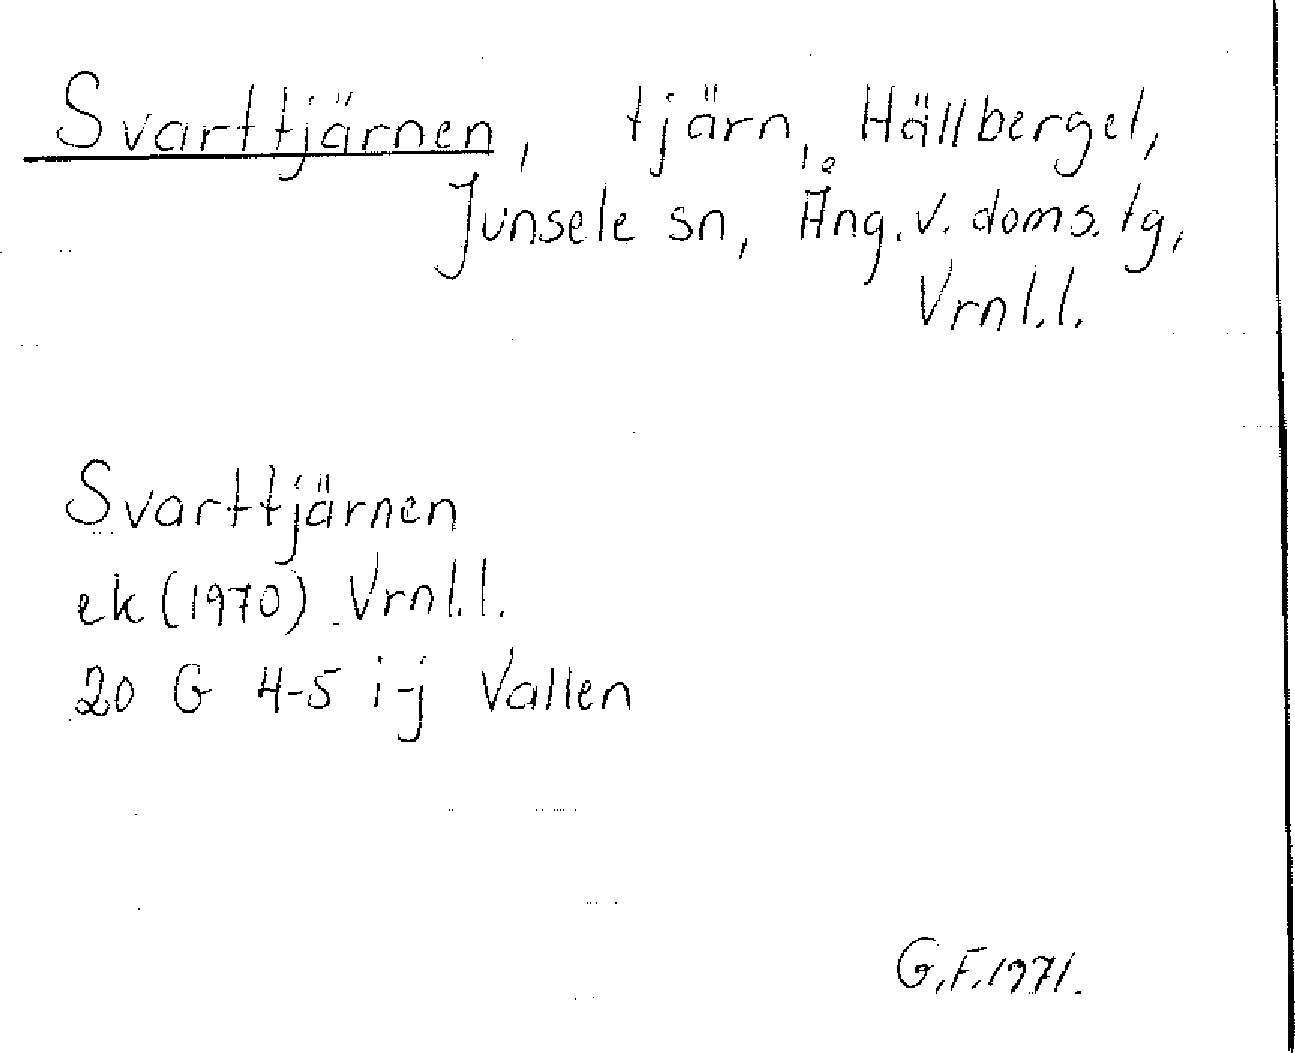 Svarttjärnen, tjärn, Hällberget,
Junsele sn, Ång. v. doms. lg,
Vrnl.l.
Svarttjärnen
ek (1970) Vrnl.l.
20 G 4-5 i-j Vallen
G.F. 1971.